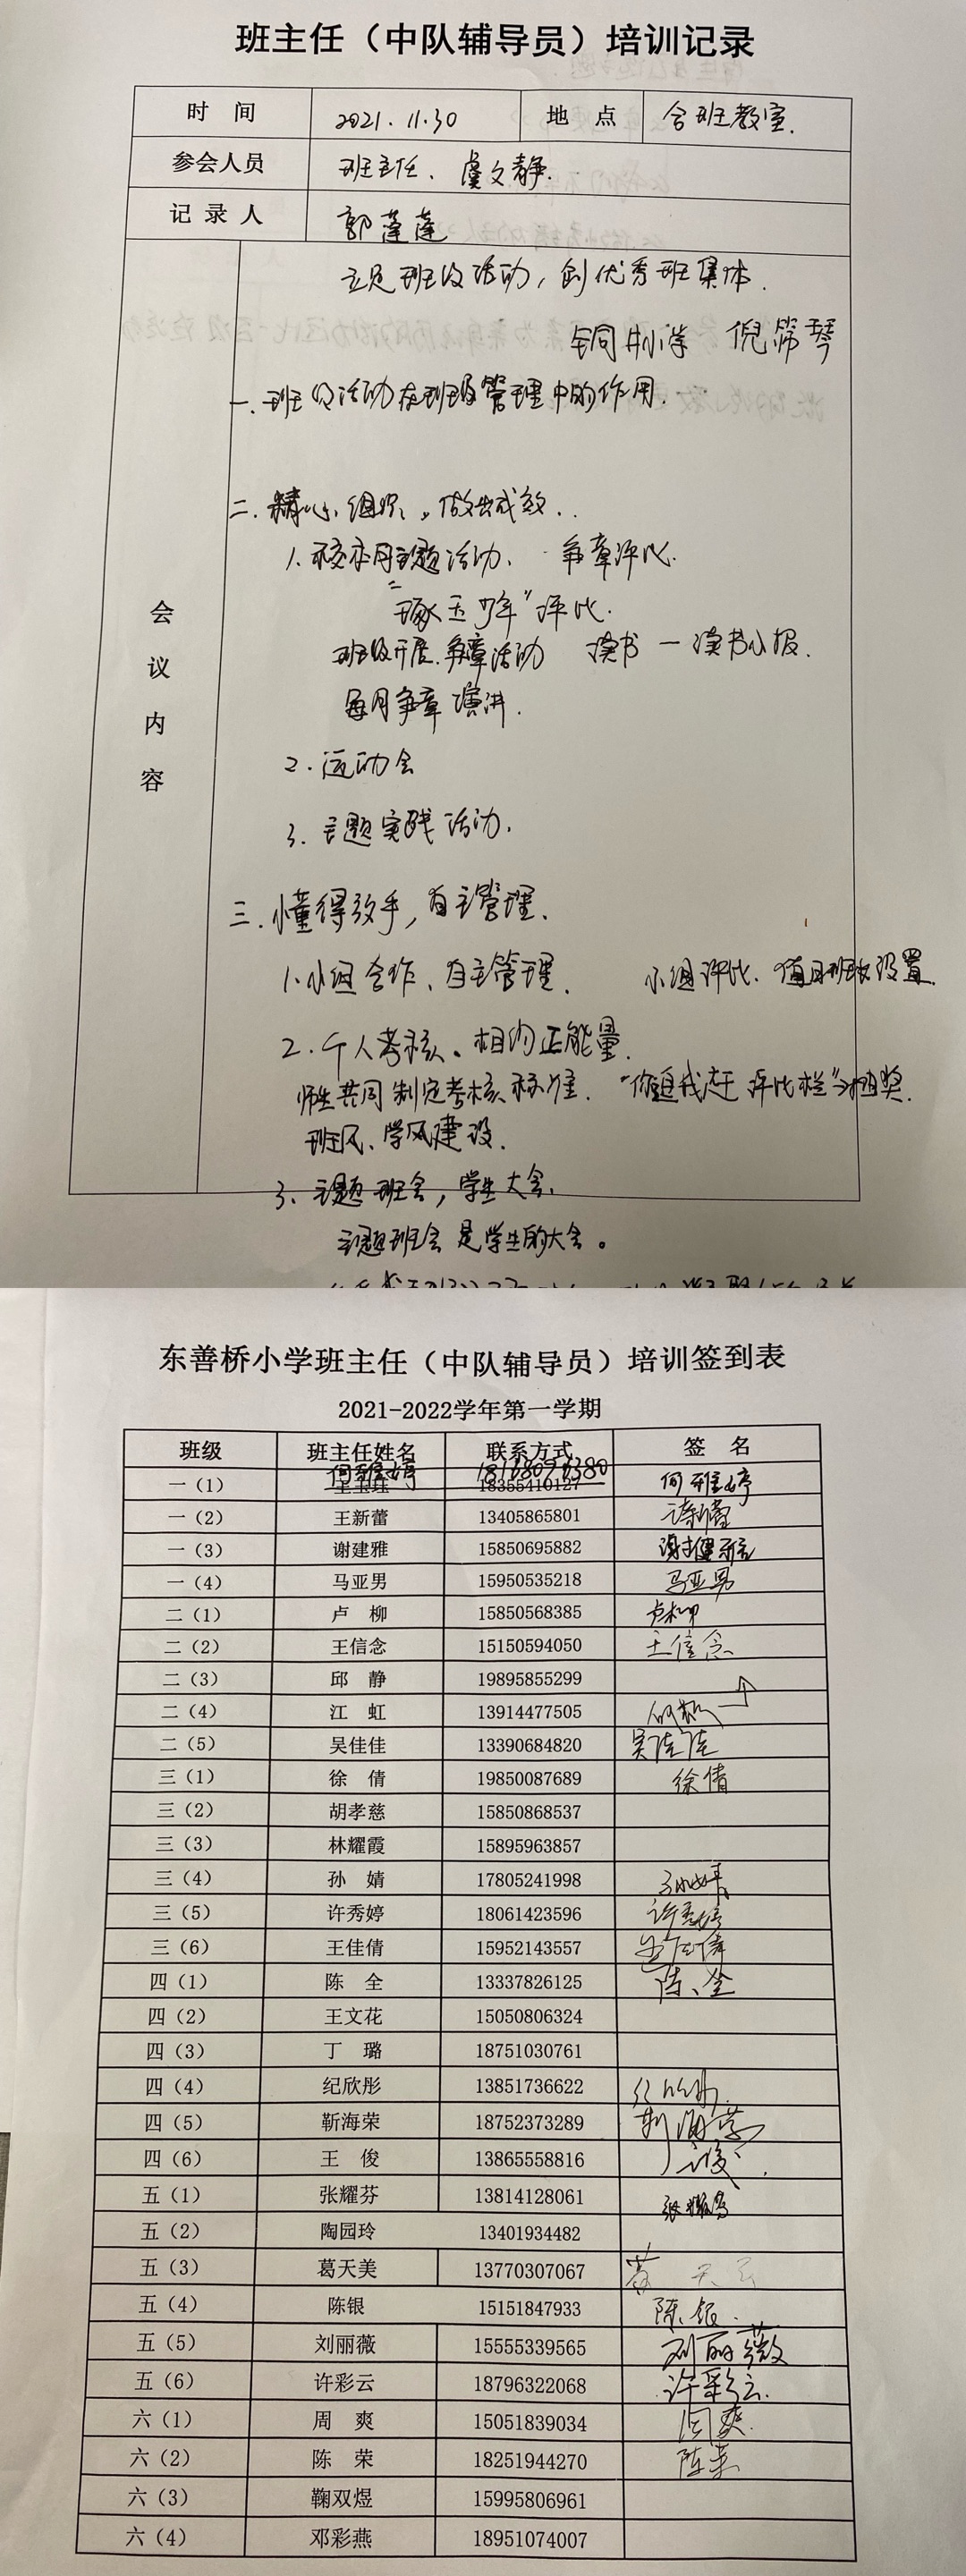 班主任（中队辅导员）培训记录
时 间 2021.11.30 地 点 合班教室.
参会人员 班主任、虞文静.
记 录 人 郭莲莲
立足班级活动，创优秀班集体.
铜井小学 倪筛琴
一.班级活动在班级管理中的作用.
二.精心组织，做出成效..
1.校本月主题活动. 争章评比.
"琢玉少年"评比.
班级开展.争章活动 读书 一 读书小报.
每月争章演讲.
2.运动会
3.主题实践活动.
三.懂得放手，自主管理.
1.小组合作、自主管理. 小组评比.值日班长设置.
2.个人考核。相约正能量.
师生共同制定考核标准. "你追我赶评比栏"→抽奖.
班风、学风建设.
3.主题班会，学生大会.
主题班会是学生的大会。
会
议
内
容
东善桥小学班主任（中队辅导员）培训签到表
2021-2022学年第一学期
班级 班主任姓名 联系方式 签 名
一（1） 何雅婷 何雅婷
18355410127
一（2） 王新蕾 13405865801 王新蕾
一（3） 谢建雅 15850695882 谢建雅
一（4） 马亚男 15950535218 马亚男
二（1） 卢 柳 15850568385 卢柳
二（2） 王信念 15150594050 王信念
二（3） 邱 静 19895855299
二（4） 江 虹 13914477505
二（5） 吴佳佳 13390684820 吴佳佳
三（1） 徐 倩 19850087689 徐倩
三（2） 胡孝慈 15850868537
三（3） 林耀霞 15895963857
三（4） 孙 婧 17805241998 孙婧
三（5） 许秀婷 18061423596 许秀婷
三（6） 王佳倩 15952143557 王佳倩
四（1） 陈 全 13337826125 陈全
四（2） 王文花 15050806324
四（3） 丁 璐 18751030761
四（4） 纪欣彤 13851736622
四（5） 靳海荣 18752373289 靳海荣
四（6） 王 俊 13865558816 王俊
五（1） 张耀芬 13814128061 张耀芬
五（2） 陶园玲 13401934482
五（3） 葛天美 13770307067 葛天美
五（4） 陈银 15151847933 陈银.
五（5） 刘丽薇 15555339565 刘丽薇
五（6） 许彩云 18796322068 许彩云.
六（1） 周 爽 15051839034 周爽.
六（2） 陈 荣 18251944270 陈荣
六（3） 鞠双煜 15995806961
六（4） 邓彩燕 18951074007